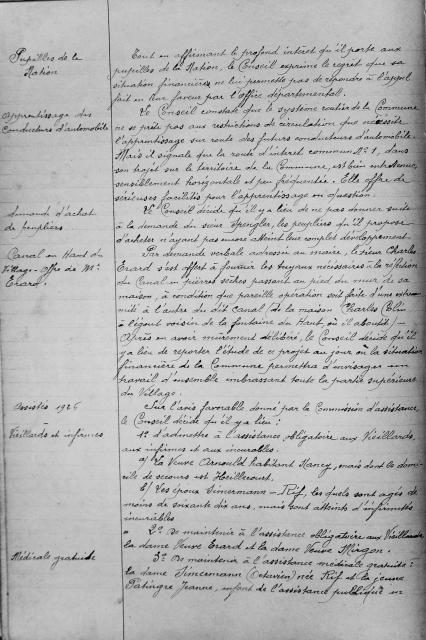 Pupilles de la
Nation
Tout en affirmant le profond intérêt qu'il porte aux
pupilles de la Nation, le Conseil exprime le regret que sa
situation financière ne lui permette pas de répondre à l'appel
fait en leur faveur par l'office départemental.
Apprentissage des
Conducteurs d'automobile
Le Conseil constate que le système routier de la Commune
ne se prête pas aux restrictions de circulation que nécessite
l'apprentissage sur route des futurs conducteurs d'automobile.
Mais il signale que la route d'intérêt commun N° 1, dans
son trajet sur le territoire de la Commune, est bien entretenue,
sensiblement horizontale et peu fréquentée. Elle offre de
sérieuses facilités pour l'apprentissage en question.
demande d'achat
de peupliers
Le Conseil décide qu'il y a lieu de ne pas donner suite
à la demande du sieur Spengler, les peupliers qu'il propose
d'acheter n'ayant pas encore atteint leur complet développement.
Canal en Haut du
Village - Offre de Mr
Erard.
Par demande verbale adressée au maire, le sieur Charles
Erard s'est offert à fournir les tuyaux nécessaires à la réfection
du Canal en pierres sèches passant au pied du mur de sa
maison, à condition que pareille opération soit faite d'une extrémité
à l'autre du dit Canal (de la maison Charles Colin
à l'égout voisin de la fontaine du Haut, où il aboutit) -
Après en avoir mûrement délibéré, le Conseil décide qu'il
y a lieu de reporter l'étude de ce projet au jour où la situation
financière de la Commune permettra d'envisager un
travail d'ensemble embrassant toute la partie supérieure
du Village.
Assistés 1926
Sur l'avis favorable donné par la Commission d'assistance,
le Conseil décide qu'il y a lieu :
Vieillards et infirmes
1° d'admettre à l'assistance obligatoire aux Vieillards,
aux infirmes et aux incurables.
a/ La Veuve Arnould habitant Nancy, mais dont le domicile
de secours est Heillecourt.
b/ Les époux Simermann - Rif, lesquels sont âgés de
moins de soixante dix ans, mais sont atteints d'infirmités
incurables
2° de maintenir à l'assistance obligatoire aux Vieillards
la dame Veuve Erard et la dame Veuve Mirgon.
Médicale gratuite
3° de maintenir à l'assistance médicale gratuite :
la dame Simermann (Octavien) née Rif et la jeune
Patingre Jeanne, enfant de l'assistance publique en